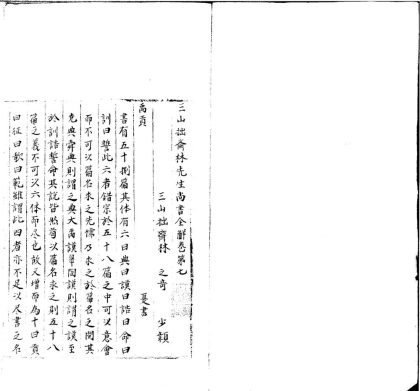 三山拙齋林先生尚書全解卷第七
三山拙齋林 之奇 少穎
禹貢 夏書
書有五十捌篇其体有六曰典曰謨曰誥曰命曰
訓曰誓此六者錯綜於五十八篇之中可以意會
而不可以篇名求之先儒乃求之於篇名之間其
堯典舜典則謂之典大禹謨皋陶謨則謂之謨至
於訓誥誓命其説皆然苟以篇名求之則五十八
篇之義不可以六体而尽也故又增而為十曰貢
曰征曰歌曰範雖謂此四者亦不足以尽書之名